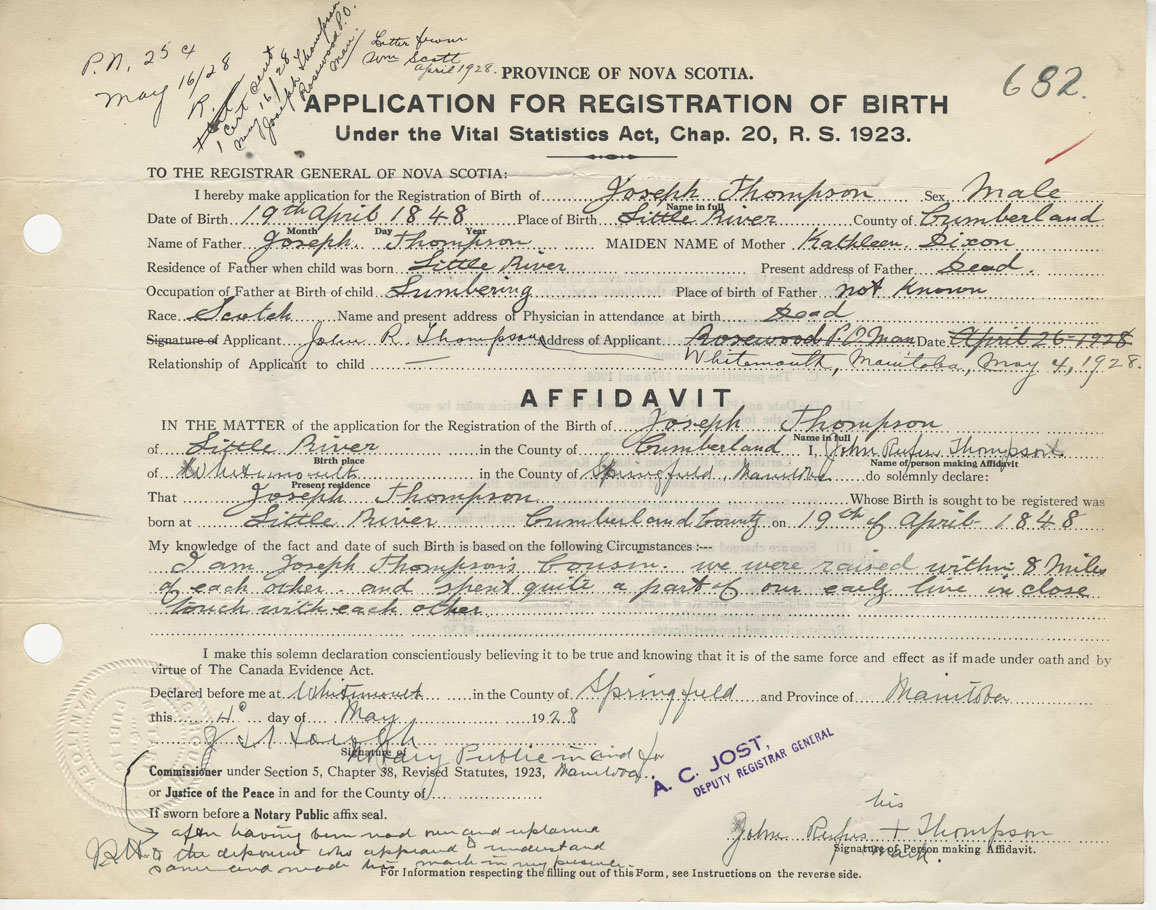 P.N. 25¢
May 16/28
R.
1 Cert sent
May 16/28
Joseph Thompson
Rosewood P.O.
Man.
Letter from
Wm Scott
April 1928.
682.
PROVINCE OF NOVA SCOTIA.
APPLICATION FOR REGISTRATION OF BIRTH
Under the Vital Statistics Act, Chap. 20, R. S. 1923.
TO THE REGISTRAR GENERAL OF NOVA SCOTIA:
I hereby make application for the Registration of Birth of Joseph Thompson Sex Male
Name in full
Date of Birth 19th April 1848 Place of Birth Little River County of Cumberland
Month Day Year
Name of Father Joseph Thompson MAIDEN NAME of Mother Kathleen Dixon
Residence of Father when child was born Little River Present address of Father Dead.
Occupation of Father at Birth of child Lumbering Place of birth of Father not Known
Race Scotch Name and present address of Physician in attendance at birth Dead
Signature of Applicant John R. Thompson Address of Applicant Rosewood P.O. Man Date April 26-1928
Whitemouth, Manitoba, May 4, 1928.
Relationship of Applicant to child
AFFIDAVIT
IN THE MATTER of the application for the Registration of the Birth of Joseph Thompson
Name in full
of Little River in the County of Cumberland I, John Rufus Thompson
Birth place Name of person making Affidavit
of Whitemouth in the County of Springfield, Manitoba do solemnly declare:
Present residence
That Joseph Thompson Whose Birth is sought to be registered was
born at Little River Cumberland County on 19th of April 1848
My knowledge of the fact and date of such Birth is based on the following Circumstances :---
I am Joseph Thompson's Cousin. we were raised within 8 Miles
of each other. and spent quite a part of our early live in close
touch with each other.
I make this solemn declaration conscientiously believing it to be true and knowing that it is of the same force and effect as if made under oath and by
virtue of The Canada Evidence Act.
Declared before me at Whitemouth in the County of Springfield and Province of Manitoba
this 4° day of May 1928
Signature of
Notary Public in and for
Commissioner under Section 5, Chapter 38, Revised Statutes, 1923, Manitoba.
or Justice of the Peace in and for the County of
If sworn before a Notary Public affix seal.
A. C. JOST,
DEPUTY REGISTRAR GENERAL
after having been read over and explained
to the deponent who appeared to understand
same and made his mark in my presence.
his
John Rufus + Thompson
mark.
Signature of Person making Affidavit.
For Information respecting the filling out of this Form, see Instructions on the reverse side.
NOTARY PUBLIC
MANITOBA